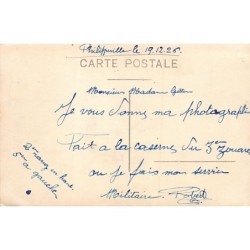 Philippeville le 19.12.25
CARTE POSTALE
Monsieur Madame
Je vous donne ma photographi
Fait a la caserne du 3ème Zouave
ou je fais mon servic
Militaire Robert
2ème rang en haut
5 a gauche